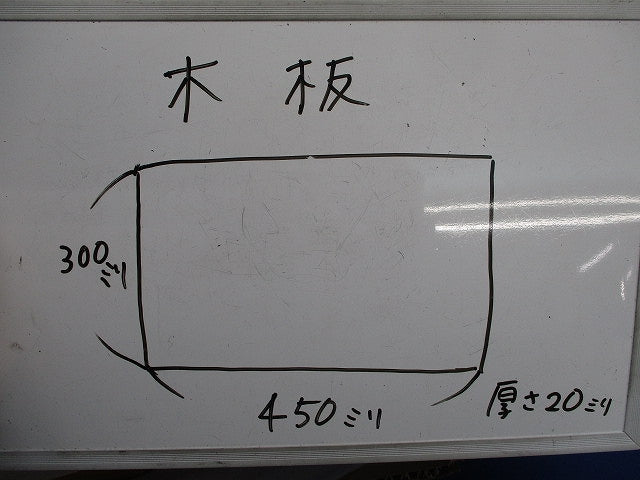 木 板
300ミリ
450ミリ
厚さ20ミリ